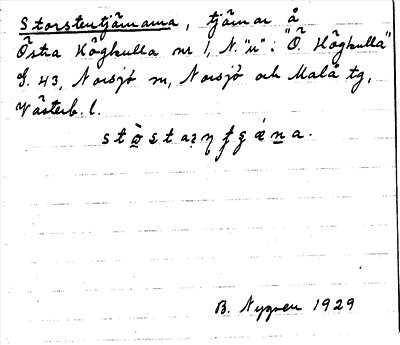 Storstentjärnarna, tjärnar å
Östra Högkulla nr 1, N. "u": "Ö. Högkulla"
S. 43, Norsjö sn, Norsjö och Malå tg,
Västerb. l.
B. Nygren 1929